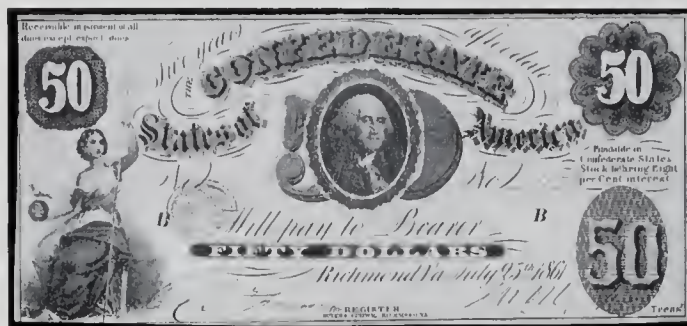 Receivable in payment of all
dues except export dues
50
Two years
THE CONFEDERATE
50
States of
America
Fundable in
Confederate States
Stock bearing Eight
per Cent interest
No
No
B
B
Will pay to Bearer
FIFTY DOLLARS
50
Richmond Va July 25th 1861
REGISTER
Treasr